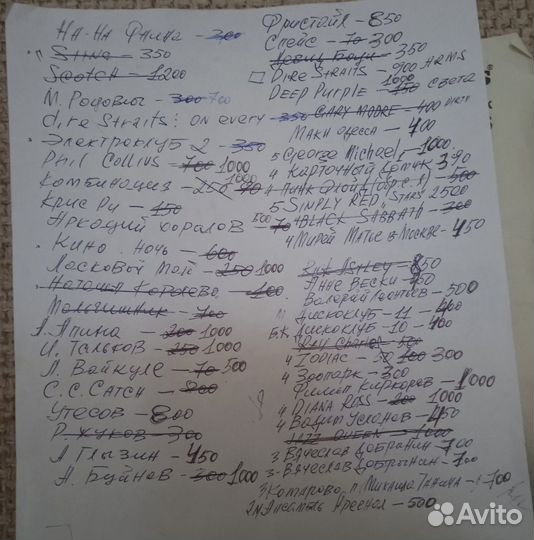 На-на Фиана - 300
Sting - 350
Scotch - 1200
М. Родович - 300 700
dire Straits: on every - 350
Электроклуб 2 - 350
Phil Collins - 700 1000
Комбинация - 250 90 1000
Крис Ри - 150
Аркадий Хоралов - 70 500
Кино. Ночь - 600
Ласковый май - 250 1000
Наташа Королёва - 100
Мальчишник - 700
А. Апина - 200 1000
И. Тальков - 250 1000
Л. Вайкуле - 70 500
C.C. Catch - 800
Утесов - 800
Р. Жуков - 300
А. Глызин - 450
А. Буйнов - 300 1000
Фристайл - 850
Спейс - 70 300
Дэвид Боуи - 350
Dire Straits - 900 ARMS
Deep Purple - 450 1000 света
Gary Moore - 400
Маки Одесса - 400
5 George Michael - 1000
4 Карточный домик 390
4 Пинк Флойд - 500
5 Simply Red "Stars" 2500
4 Black Sabbath - 700
4 Мирей Матье в Москве - 450
Rick Astley - 850
Анне Вески - 450
Валерий Леонтьев - 500
Дискоклуб - 11 - 400
Б.К. Дискоклуб - 10 - 400
Ray Charles - 500
4 Zodiac - 50 100 300
4 Зоопарк - 300
Филип Киркоров - 1000
4 Diana Ross - 200 1000
4 Вадим Усланов - 450
Jazz Queen - 1000
3 Вячеслав Добрынин - 700
3 - Вячеслав Добрынин - 700
3 Комарово, п. Михаила Танича - 700
Ансамбль Арсенал - 500
Avito